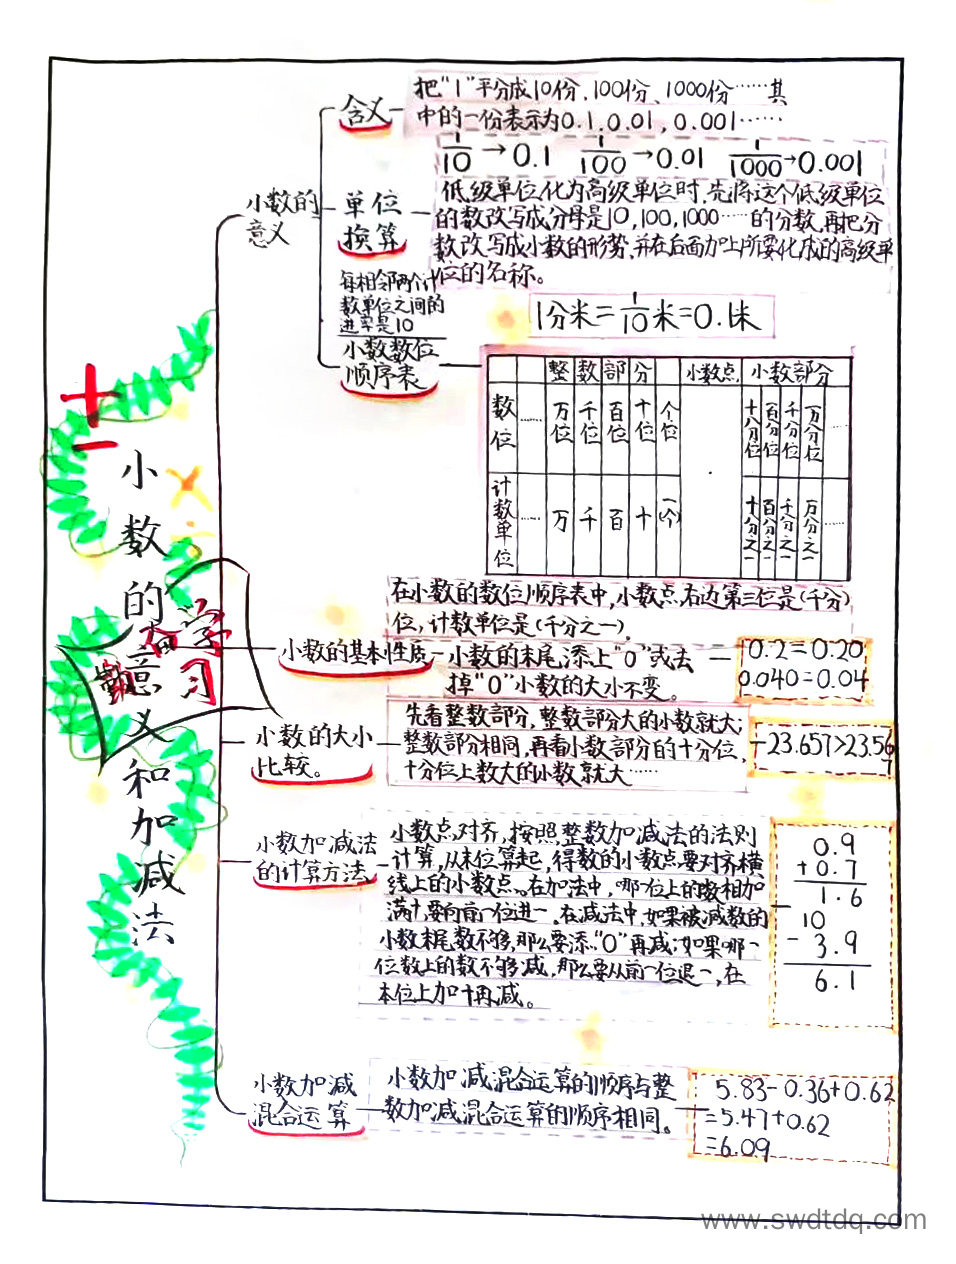 小数的意义和加减法
学习
小数的
意义
含义
把“1”平分成10份、100份、1000份……其
中的一份表示为0.1,0.01,0.001……
1/10→0.1 1/100→0.01 1/1000→0.001
单位
换算
低级单位化为高级单位时,先将这个低级单位
的数改写成分母是10,100,1000……的分数,再把分
数改写成小数的形势,并在后面加上所要化成的高级单
位的名称。
每相邻两个计
数单位之间的
进率是10
1分米=1/10米=0.1米
小数数位
顺序表
整数部分 小数点 小数部分
数位 …… 万位 千位 百位 十位 个位 · 十分位 百分位 千分位 万分位 ……
计数单位 …… 万 千 百 十 一(个) 十分之一 百分之一 千分之一 万分之一 ……
在小数的数位顺序表中,小数点右边第三位是(千分)
位,计数单位是(千分之一)。
小数的基本性质
小数的末尾添上“0”或去
掉“0”小数的大小不变。
0.2=0.20
0.040=0.04
小数的大小
比较。
先看整数部分,整数部分大的小数就大;
整数部分相同,再看小数部分的十分位,
十分位上数大的小数就大……
23.657>23.56
7
小数加减法
的计算方法
小数点对齐,按照整数加减法的法则
计算,从末位算起,得数的小数点要对齐横
线上的小数点。在加法中,哪一位上的数相加
满十要向前一位进一,在减法中,如果被减数的
小数末尾数不够,那么要添“0”再减;如果哪一
位数上的数不够减,那么要从前一位退一,在
本位上加十再减。
0.9
+0.7
1.6
10
-3.9
6.1
小数加减
混合运算
小数加减混合运算的顺序与整
数加减混合运算的顺序相同。
5.83-0.36+0.62
=5.47+0.62
=6.09
www.swdtdq.com